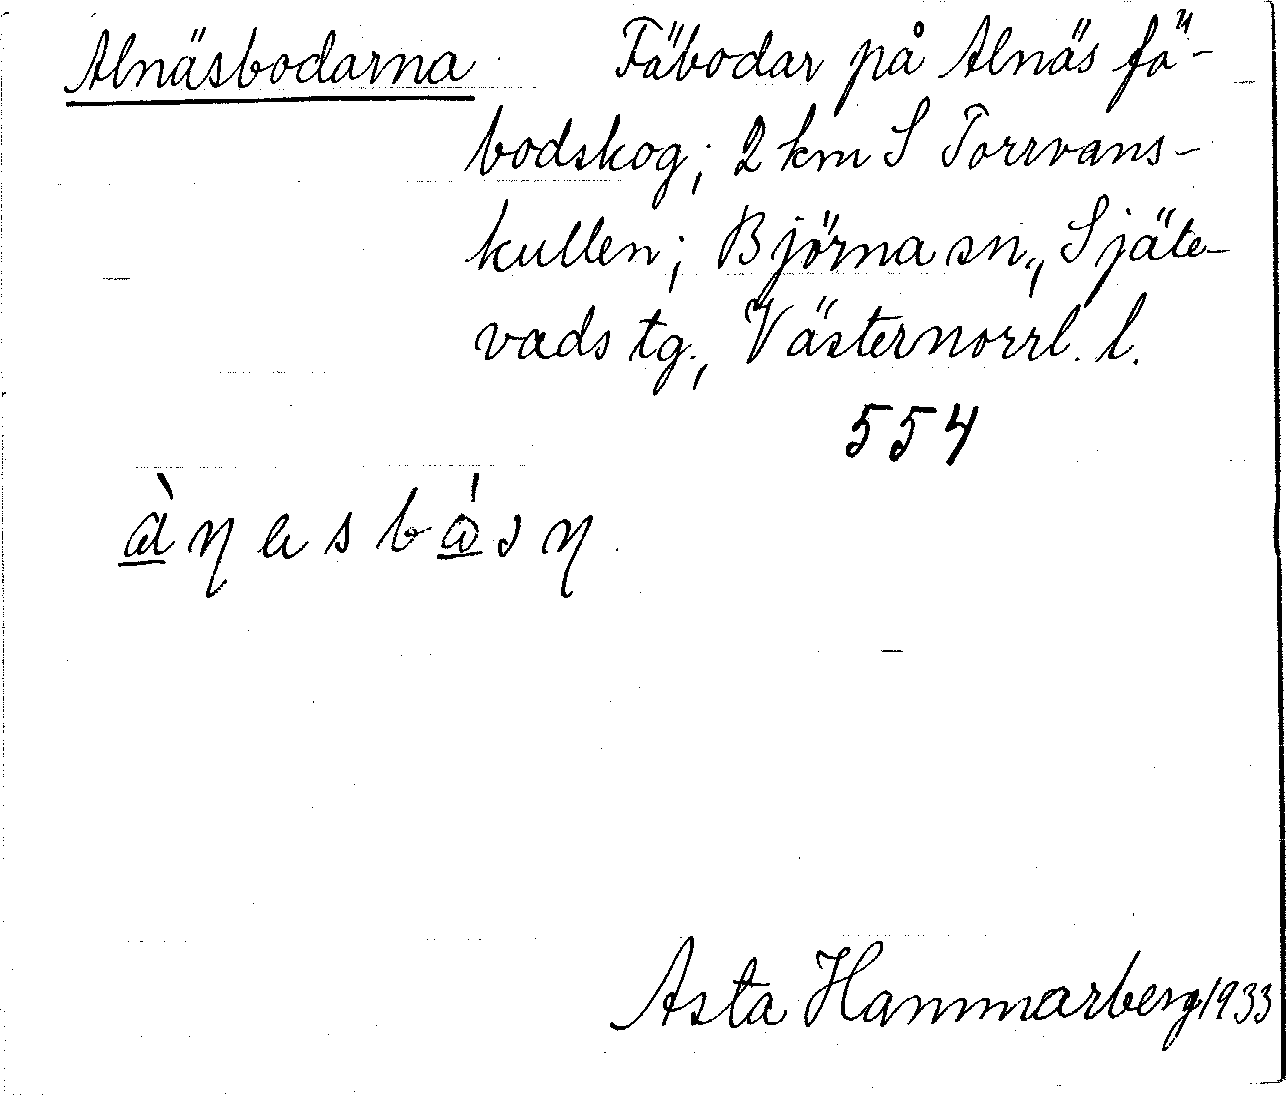 Alnäsbodarna Fäbodar på Alnäs fä-
bodskog; 2 km S Torrvans-
kullen; Björna sn., Själe-
vads tg., Västernorrl. l.
554
Asta Hammarberg 1933